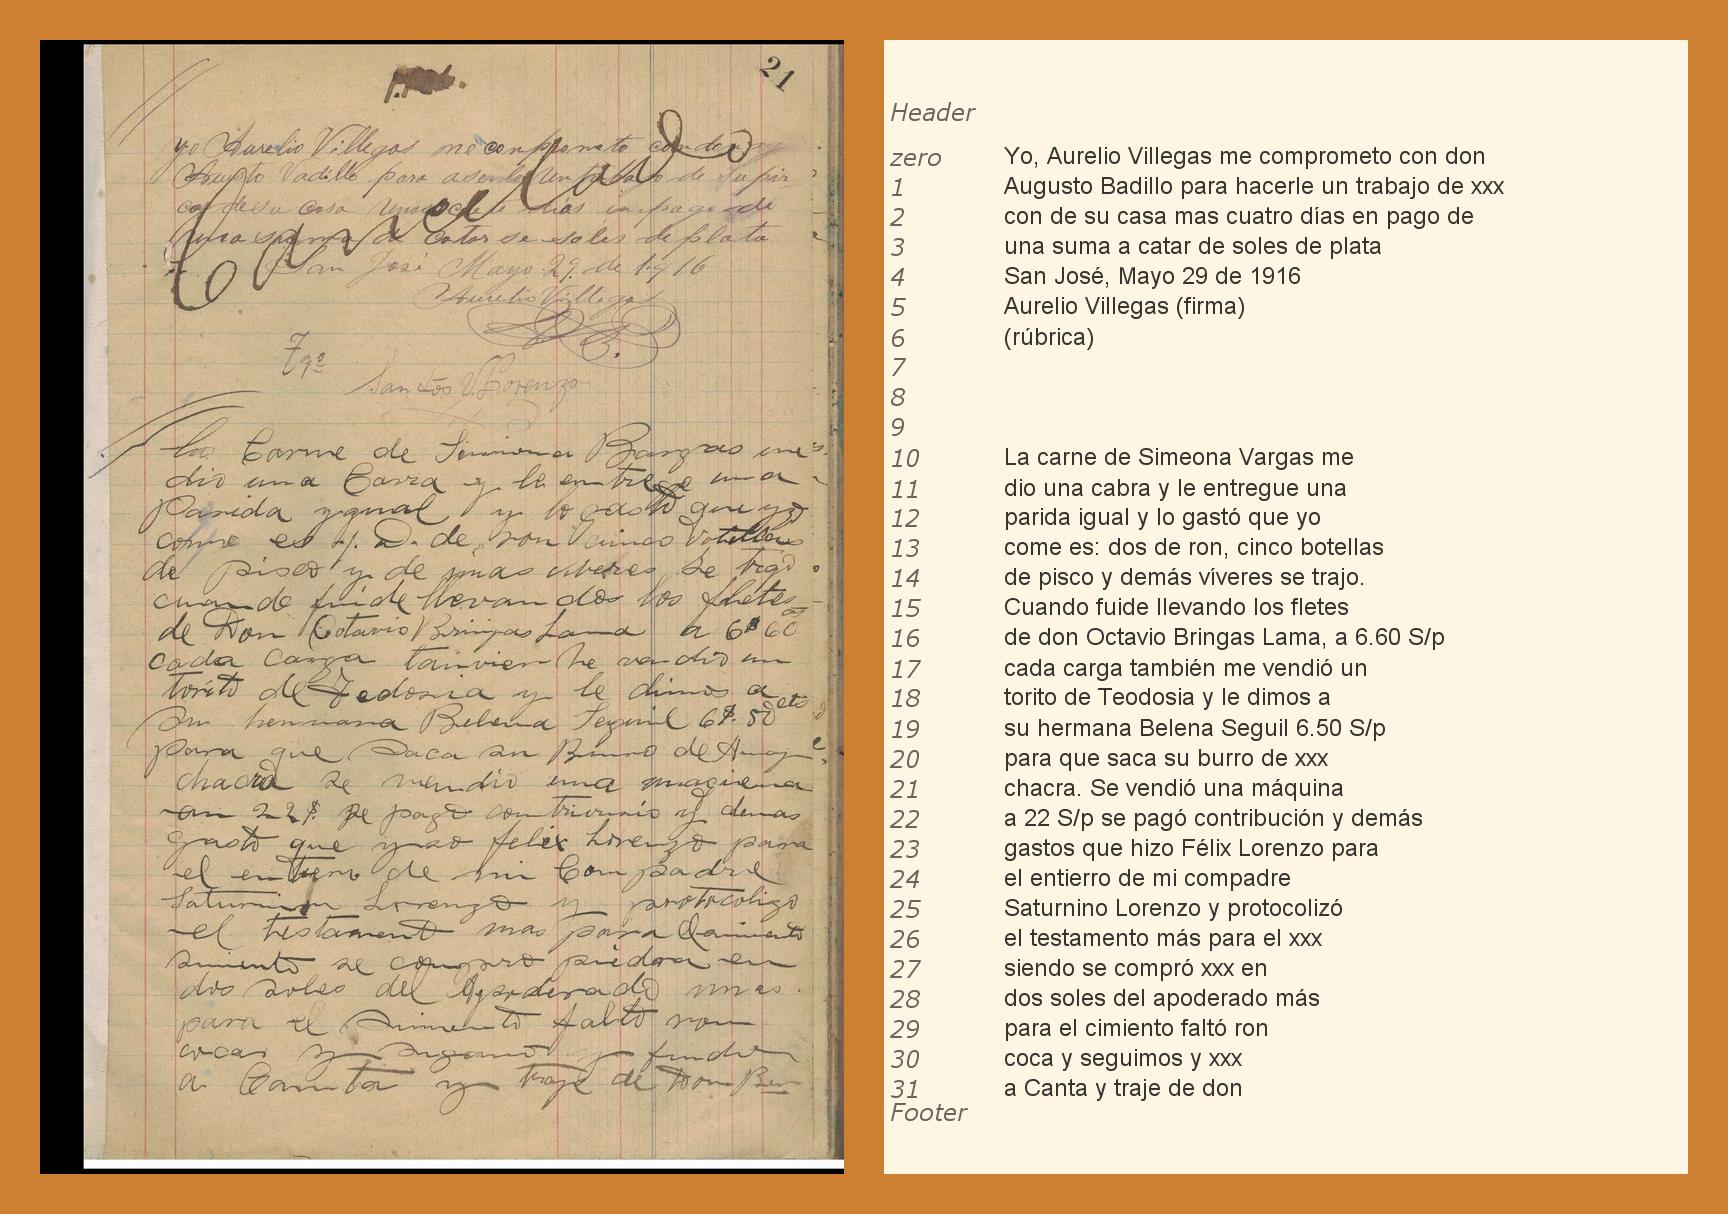 21
yo Aurelio Villegas me conprometo con don
Vadillo para un de
de su casa dias in pago de
una suma de catorse soles de plata
San José Mayo 29 de 1916
Aurelio Villegas
Tgo
Santos V. Lorenzo
la Carne de Simiona Bargas me
dio una Carra y le entrege una
Parida ygual y lo gasto que yso
come es de ron cinco votellas
de pisco y de mas viberes se trajo
cuando fuide llevandos los fletes
de Don Octavio Bringas Lama a 6$60
cada carga tanvien he vendio un
torito de Tedosia y le dimos a
su hermana Belena Seguil 6$.50 cts
para que saca su Burro de
chacra se vendio una maquena
en 22$ se pago contrivucio y demas
gasto que yso felix Lorenzo para
el entiero de mi Compadre
Saturnino Lorenzo y protocolizo
el testament mas para
simiento se compro piedra en
dos soles del Apoderado mas
para el simiento falto ron
cocas y sigarro y
a Canta y traje de Don Ben
Header
zero Yo, Aurelio Villegas me comprometo con don
1 Augusto Badillo para hacerle un trabajo de xxx
2 con de su casa mas cuatro días en pago de
3 una suma a catar de soles de plata
4 San José, Mayo 29 de 1916
5 Aurelio Villegas (firma)
6 (rúbrica)
7
8
9
10 La carne de Simeona Vargas me
11 dio una cabra y le entregue una
12 parida igual y lo gastó que yo
13 come es: dos de ron, cinco botellas
14 de pisco y demás víveres se trajo.
15 Cuando fuide llevando los fletes
16 de don Octavio Bringas Lama, a 6.60 S/p
17 cada carga también me vendió un
18 torito de Teodosia y le dimos a
19 su hermana Belena Seguil 6.50 S/p
20 para que saca su burro de xxx
21 chacra. Se vendió una máquina
22 a 22 S/p se pagó contribución y demás
23 gastos que hizo Félix Lorenzo para
24 el entierro de mi compadre
25 Saturnino Lorenzo y protocolizó
26 el testamento más para el xxx
27 siendo se compró xxx en
28 dos soles del apoderado más
29 para el cimiento faltó ron
30 coca y seguimos y xxx
31 a Canta y traje de don
Footer